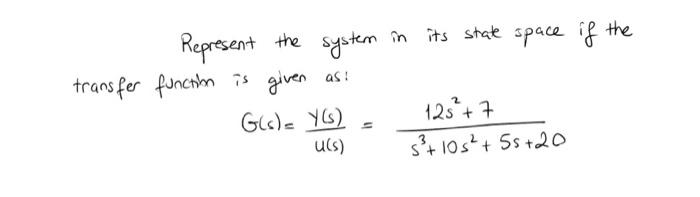 Represent the system in its state space if the
transfer function is given as:
G(s) = Y(s)/U(s) = (12s² + 7)/(s³ + 10s² + 5s + 20)